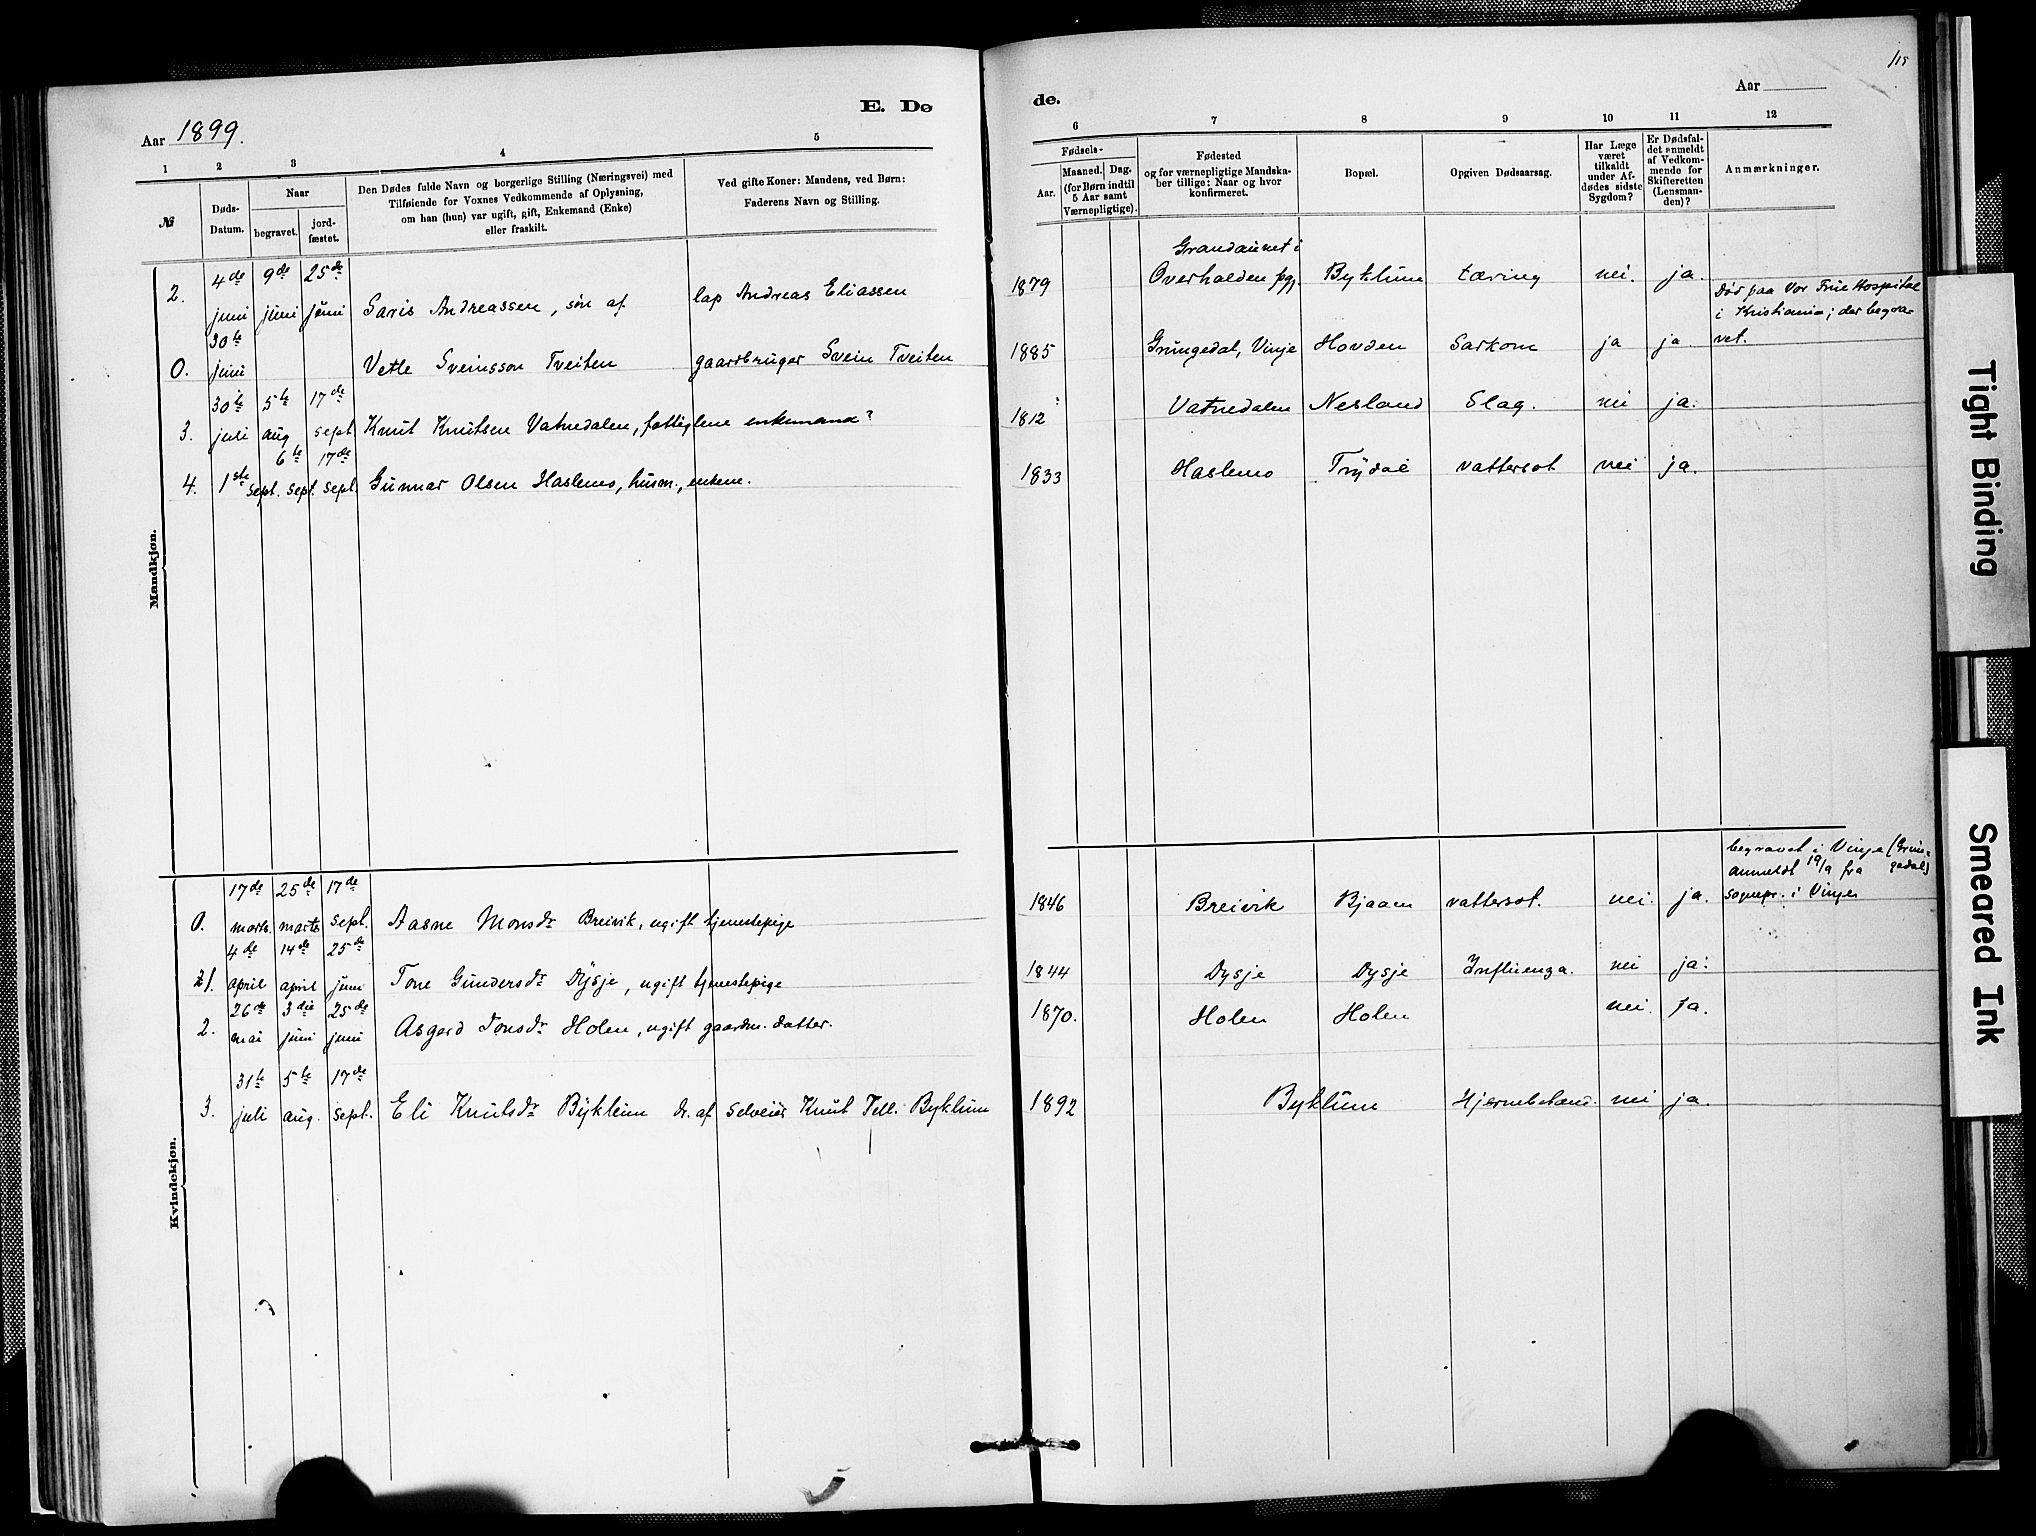 115
E. Dø
de.
Aar 1899.
Aar
1 2 3 4 5 6 7 8 9 10 11 12
№
Døds-
Datum.
Naar
begravet.
jord-
fæstet.
Den Dødes fulde Navn og borgerlige Stilling (Næringsvei) med
Tilføiende for Voxnes Vedkommende af Oplysning,
om han (hun) var ugift, gift, Enkemand (Enke)
eller fraskilt.
Ved gifte Koner: Mandens, ved Børn:
Faderens Navn og Stilling.
Fødsels-
Aar.
Maaned. Dag.
(for Børn indtil
5 Aar samt
Værnepligtige).
Fødested
og for værnepligtige Mandska-
ber tillige: Naar og hvor
konfirmeret.
Bopæl.
Opgiven Dødsaarsag.
Har Læge
været
tilkaldt
under Af-
dødes sidste
Sygdom?
Er Dødsfal-
det anmeldt
af Vedkom-
mende for
Skifteretten
(Lensman-
den)?
Anmærkninger.
Mandkjøn.
2. 4de juni 9de juni 25de juni Saris Andreassen, søn af lap Andreas Eliassen 1879 Grandaunet i Overhalden pgj. Byklum tæring nei. ja.
0. 30te juni Vetle Sveinsson Tveiten gaardbruger Svein Tveiten 1885 Grungedal, Vinje Hovden Sarkom ja ja. Død paa Vor Frue Hospital
i Kristiania; der begra-
vet.
3. 30te juli 5te aug. 17de sept Knut Knutsen Vatnedalen, fattiglem enkemand? 1812 Vatnedalen Nesland Slag. nei ja.
4. 1ste sept. 6te sept. 17de sept. Gunnar Olsen Haslemo, husm., enkem. 1833 Haslemo Trydal vattersot nei ja.
Kvindekjøn.
0. 17de marts. 25de marts 17de sept. Aasne Monsdr Breivik, ugift tjenestepige 1846 Breivik Bjaaen vattersot. nei. ja. begravet i Vinje (Grun-
anmeldt 19/9 fra gedal)
sognepr. i Vinje
1. 4de april 14de april 25de juni Tone Gundersdr Dysje, ugift tjenestepige 1844 Dysje Dysje Influenza. nei ja.
2. 26de mai 3die juni 25de juni Asgerd Jonsdr Holen, ugift gaardm. datter. 1870. Holen Holen nei. ja.
3. 31te juli 5te aug. 17de sept. Eli Knutsdr Byklum dr. af selveier Knut Tell. Byklum 1892 Byklum Hjernebetænd. nei ja.
Tight Binding
Smeared Ink